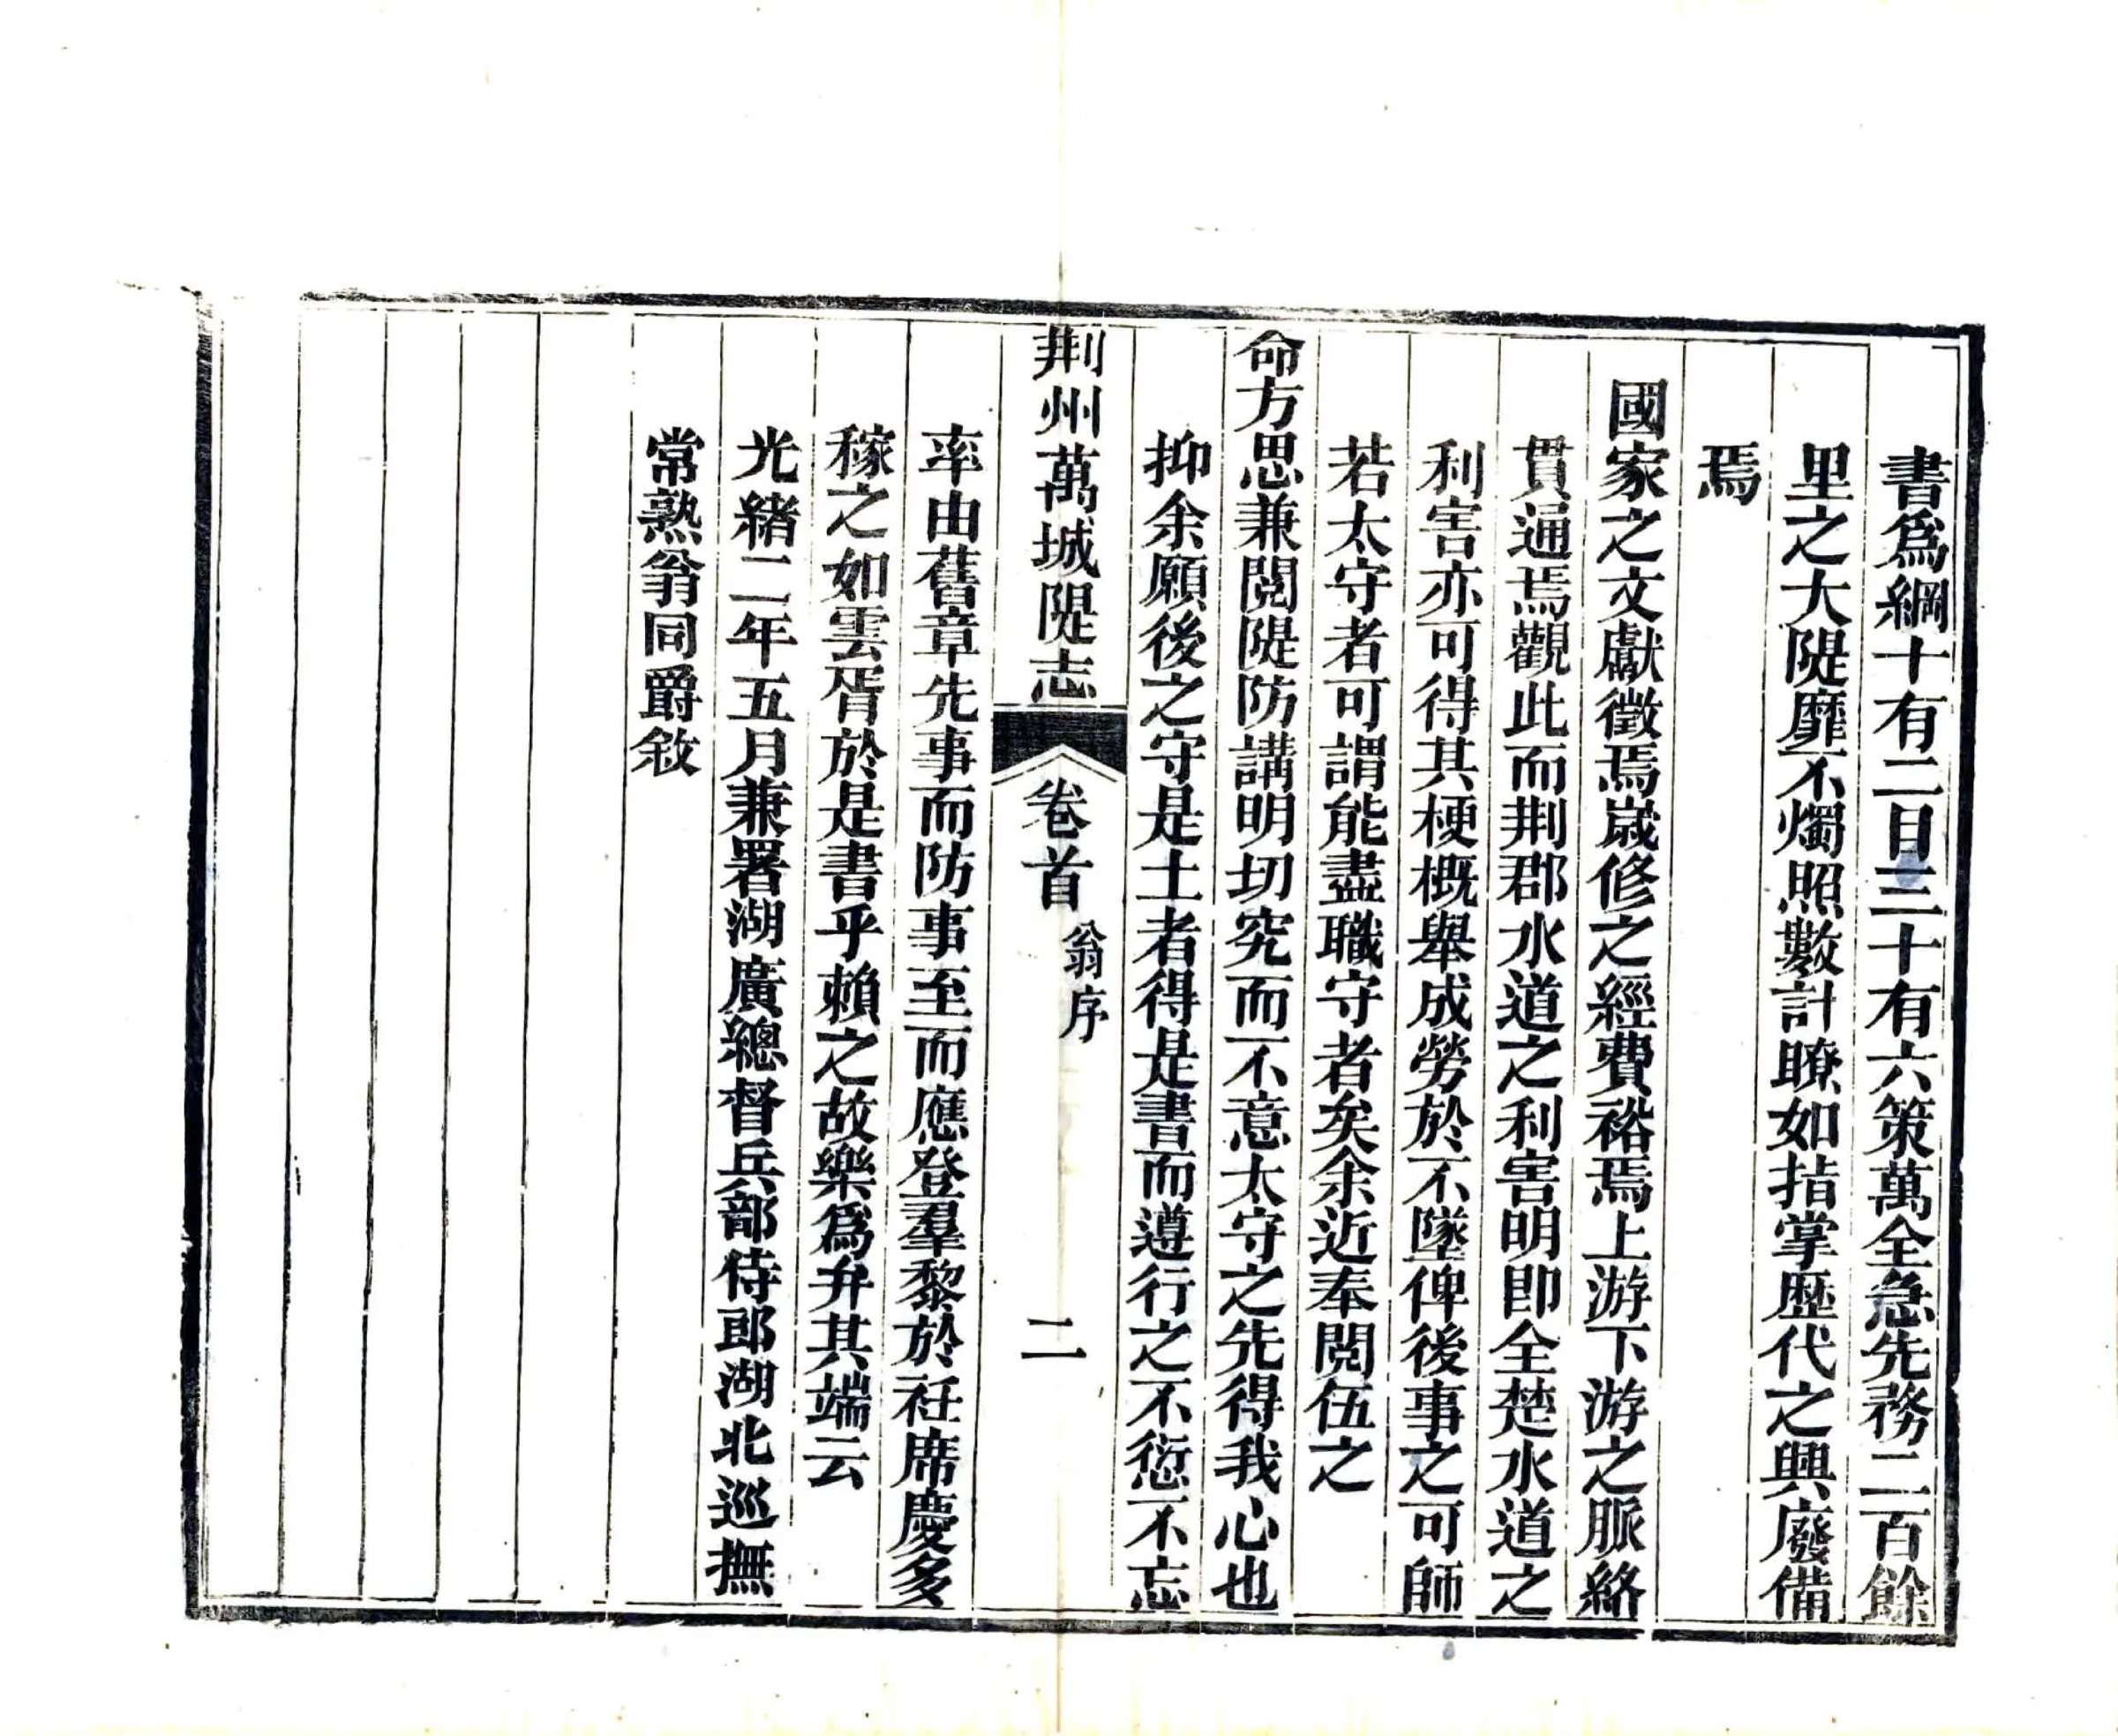 書爲綱十有二目三十有六策萬全急先務二百餘
里之大隄靡不燭照數計瞭如指掌歷代之興廢備
焉
國家之文獻徵焉歲修之經費裕焉上游下游之脈絡
貫通焉觀此而荆郡水道之利害明即全楚水道之
利害亦可得其梗概舉成勞於不墜俾後事之可師
若太守者可謂能盡職守者矣余近奉閱伍之
命方思兼閱隄防講明切究而不意太守之先得我心也
抑余願後之守是土者得是書而遵行之不愆不忘
荆州萬城隄志 卷首 翁序 二
率由舊章先事而防事至而應登羣黎於衽席慶多
稼之如雲胥於是書乎賴之故樂爲弁其端云
光緒二年五月兼署湖廣總督兵部侍郎湖北巡撫
常熟翁同爵敘